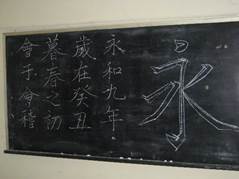 永
永和九年
歲在癸丑
暮春之初
會于會稽